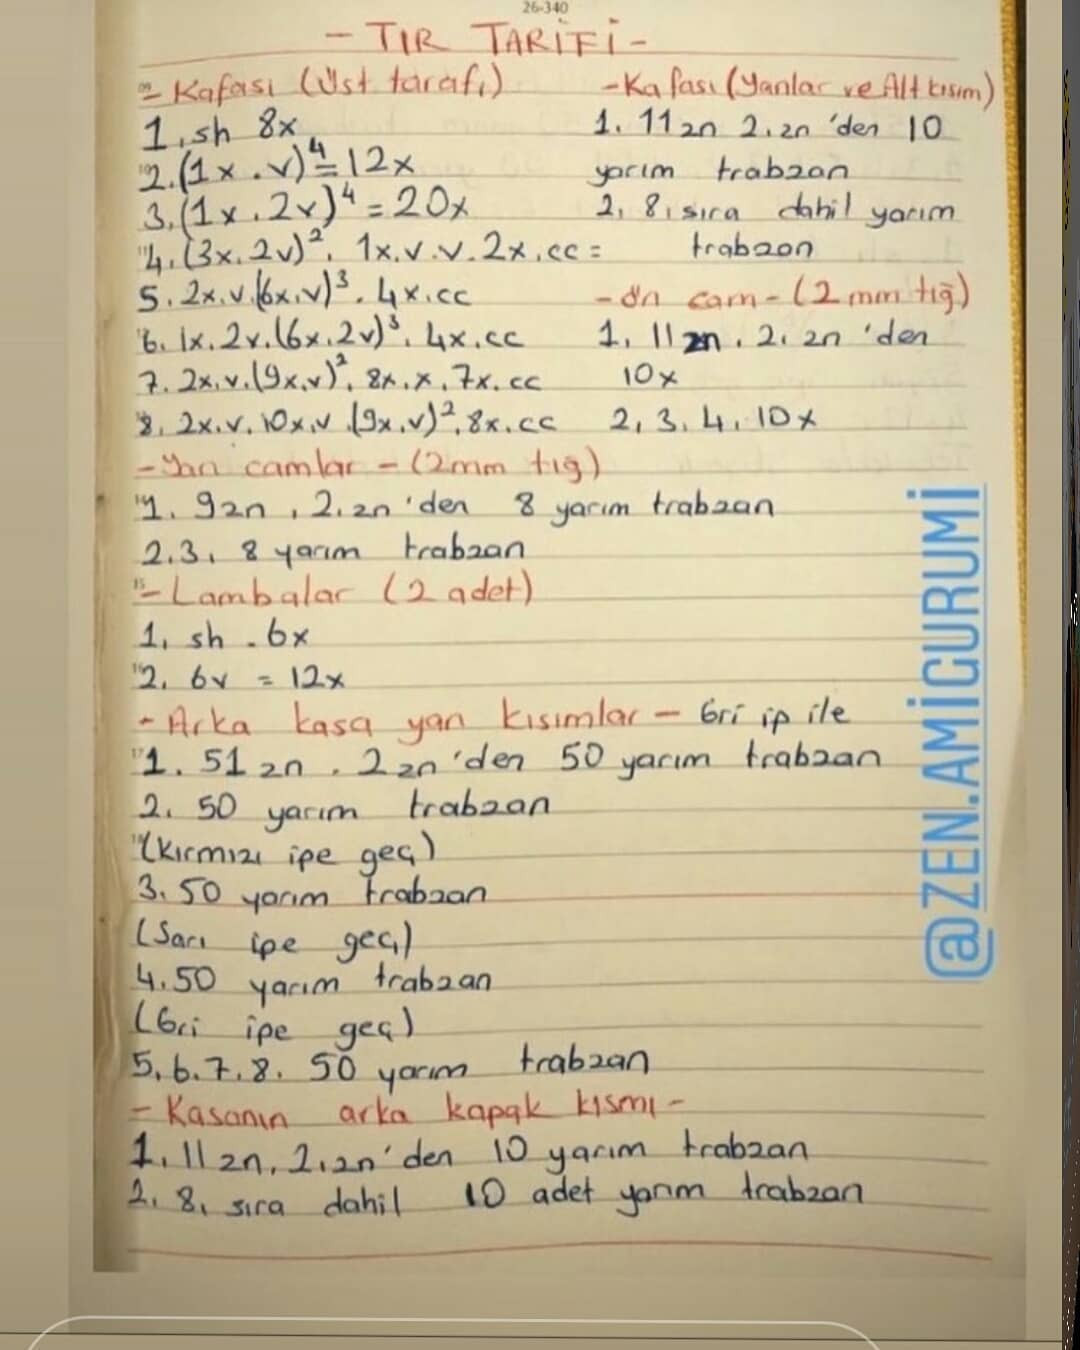 26-340
- TIR TARİFİ -
- Kafası (Üst tarafı)
1. sh 8x
2. (1x.v)⁴ = 12x
3. (1x.2v)⁴ = 20x
4. (3x.2v)², 1x.v.v.2x.cc =
5. 2x.v.(6x.v)³. 4x.cc
6. 1x.2v.(6x.2v)³. 4x.cc
7. 2x.v.(9x.v)², 8x.x.7x.cc
8. 2x.v.10x.v (9x.v)², 8x.cc
- Kafası (Yanlar ve Alt kısım)
1. 11 zn 2. zn 'den 10
yarım trabzan
2, 8, sıra dahil yarım
trabzan
- Ön cam - (2 mm tığ)
1. 11 zn. 2. zn 'den
10x
2, 3. 4. 10x
- Yan camlar - (2mm tığ)
1. 9zn, 2. zn 'den 8 yarım trabzan
2.3. 8 yarım trabzan
- Lambalar (2 adet)
1. sh . 6x
2. 6v = 12x
- Arka kasa yan kısımlar - Gri ip ile
1. 51 zn. 2 zn 'den 50 yarım trabzan
2. 50 yarım trabzan
(Kırmızı ipe geç)
3. 50 yarım trabzan
(Sarı ipe geç)
4. 50 yarım trabzan
(Gri ipe geç)
5, 6. 7. 8. 50 yarım trabzan
- Kasanın arka kapak kısmı -
1. 11 zn, 2. zn 'den 10 yarım trabzan
2. 8. sıra dahil 10 adet yarım trabzan
@ZEN.AMİGURUMİ